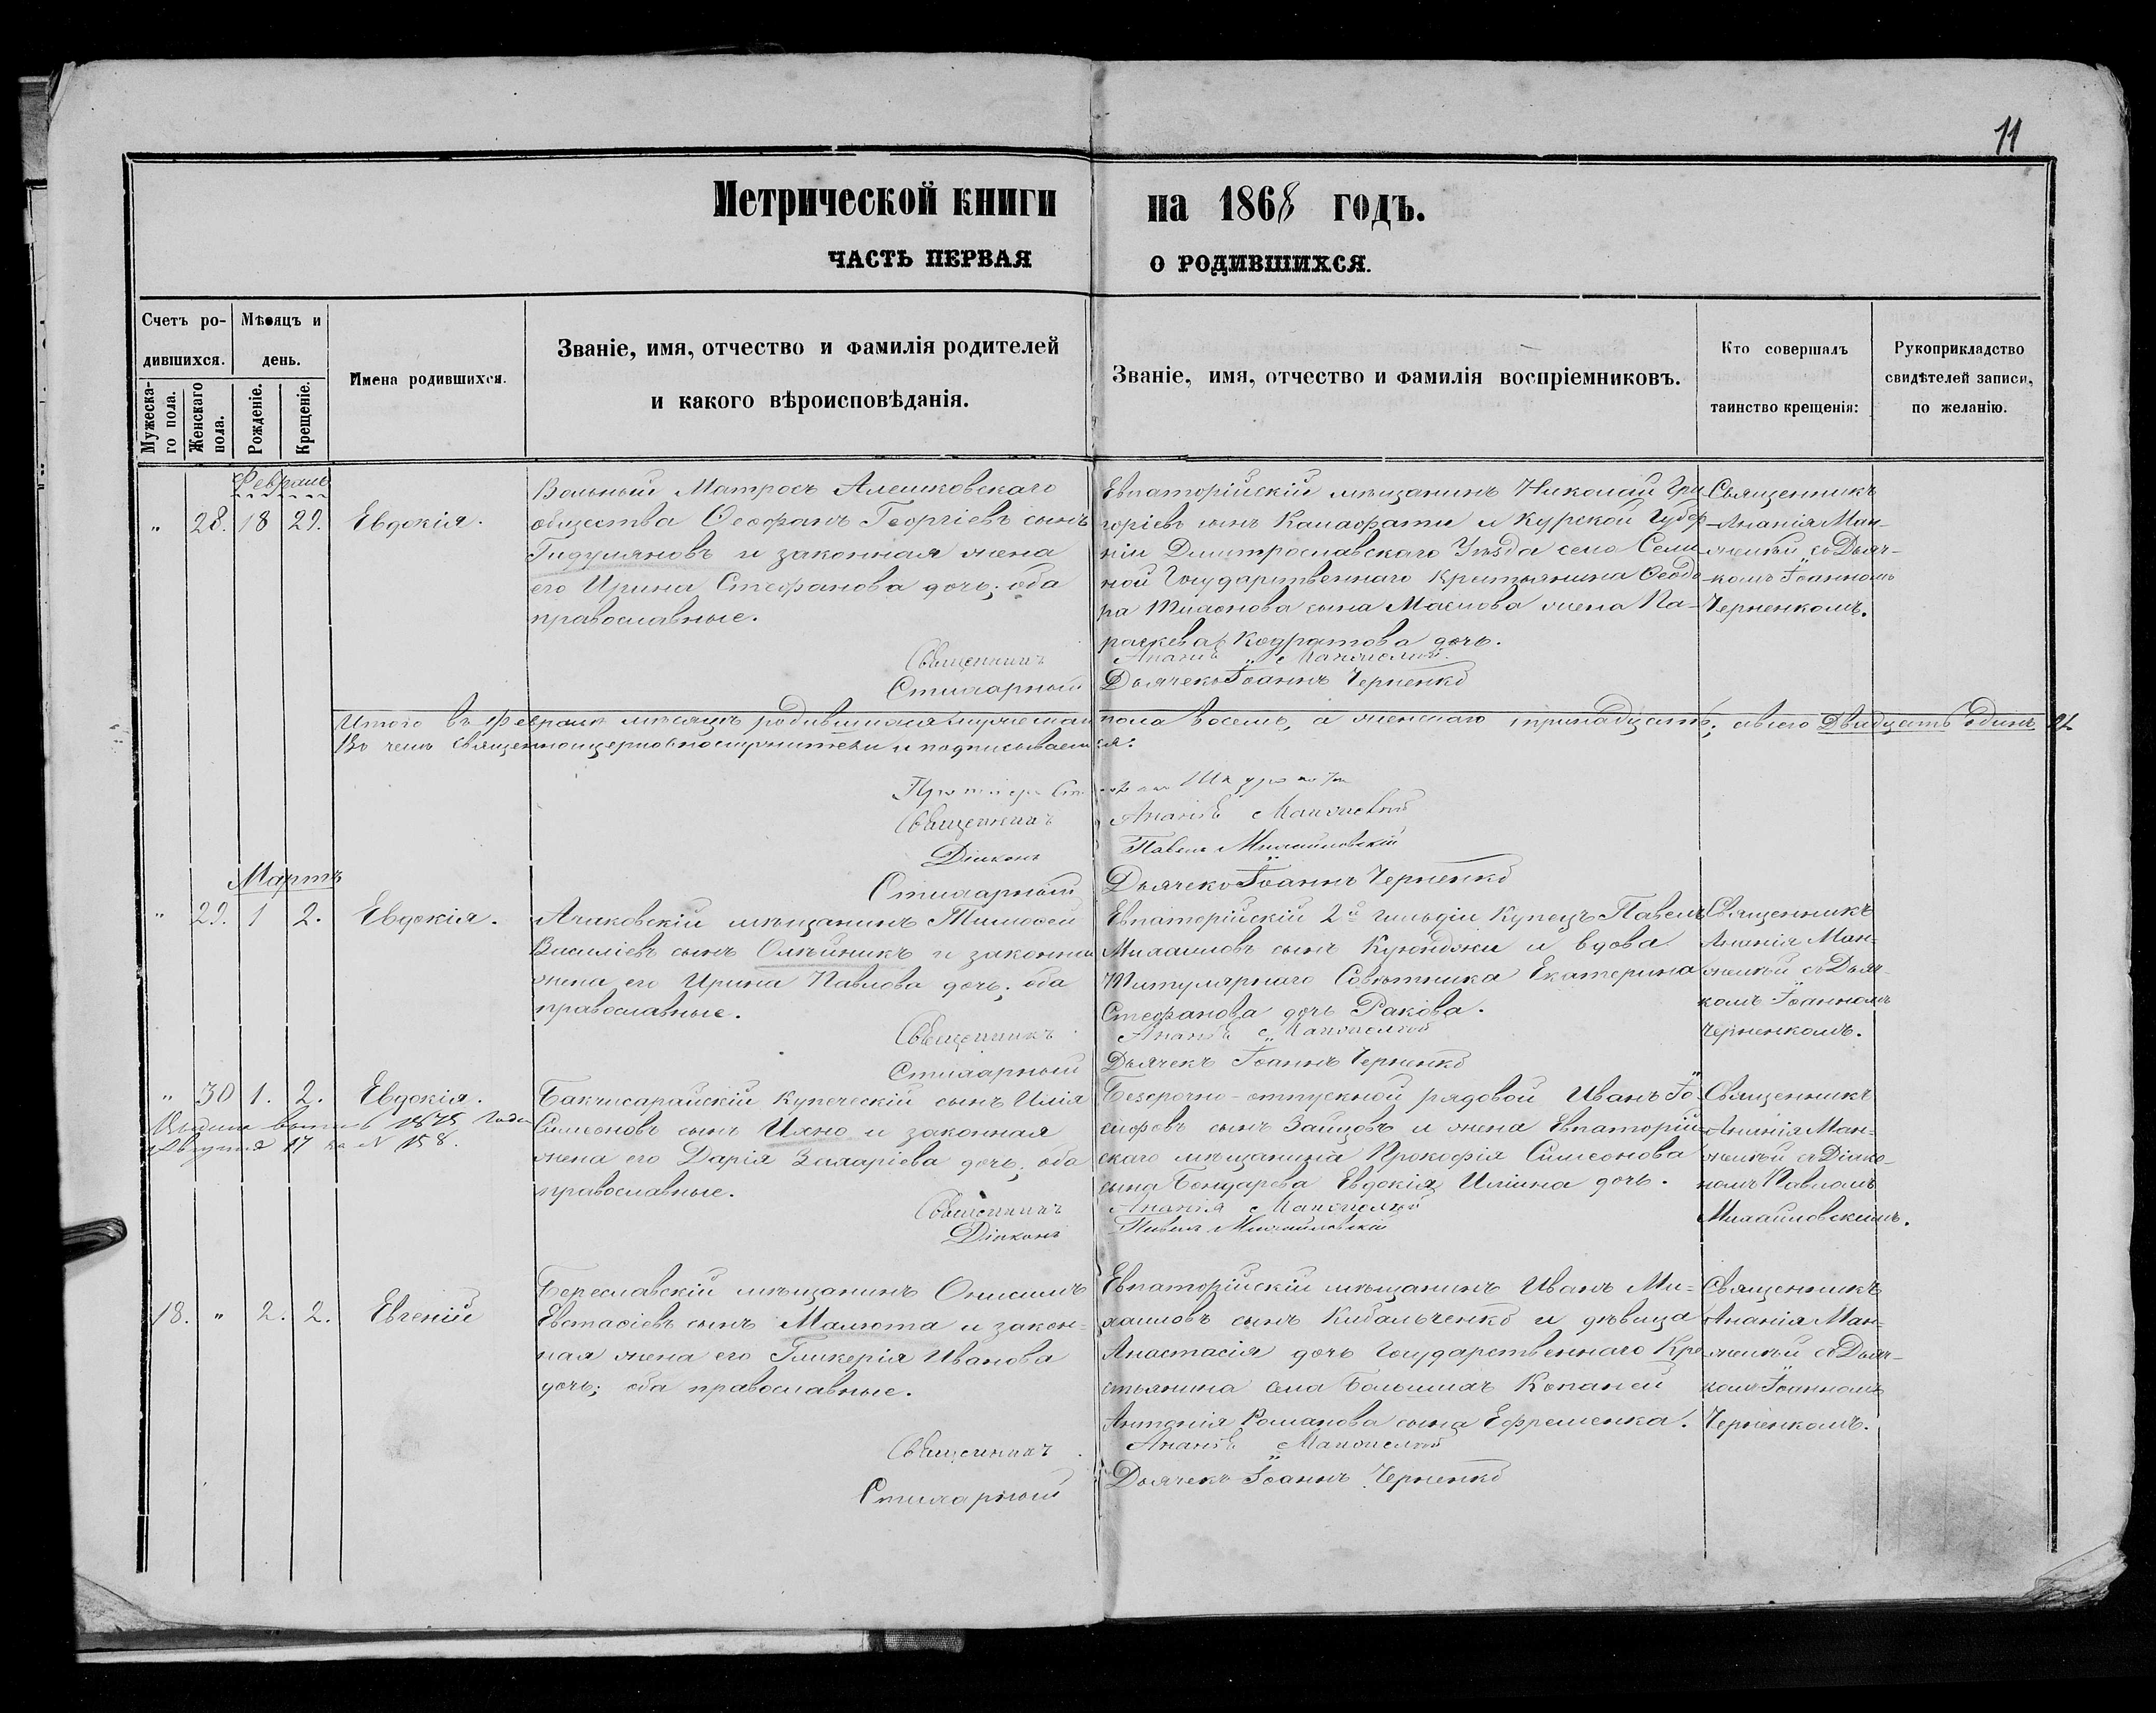 11
Метрической книги на 1868 годъ.
ЧАСТЬ ПЕРВАЯ О РОДИВШИХСЯ.
Счетъ ро-
дившихся.
Мужеска-
го пола.
Женскаго
пола.
Мѣсяцъ и
день.
Рожденіе.
Крещеніе.
Имена родившихся.
Званіе, имя, отчество и фамилія родителей
и какого вѣроисповѣданія.
Званіе, имя, отчество и фамилія воспріемниковъ.
Кто совершалъ
таинство крещенія:
Рукоприкладство
свидѣтелей записи,
по желанію.
Февраль
" 28. 18 29. Евдокія.
Вольный Матросъ Алешковскаго
общества Ѳеофанъ Георгіевъ сынъ
Гидуляновъ и законная жена
его Ирина Стефанова дочь; оба
православные.
Евпаторійскій мѣщанинъ Николай Гри
горіевъ сынъ Калафати и Курской Губер
ніи Дмитрославскаго Уѣзда села Сели
ной Государственнаго Крестьянина Ѳеодо
ра сына жена Па-
раскева Кодратова дочь.
Священникъ
Ананія Ман-
желѣй съ Дьяч-
комъ Іоанномъ
Черненкомъ.
Священникъ Ананія
Стихарный Дьячекъ Іоаннъ Черненко
Итого въ Февралѣ мѣсяцѣ родившихся мужескаго пола восемь, а женскаго тринадцать; обоего двадцать одинъ 21.
Въ чемъ священноцерковнослужители и подписываемся:
Священникъ Ананія
Діаконъ Павелъ Михайловскій
Стихарный Дьячекъ Іоаннъ Черненко
Мартъ
" 29. 1 2. Евдокія.
Ачаковскій мѣщанинъ Тимоѳей
Василіевъ сынъ Олѣйникъ и законная
жена его Ирина Павлова дочь; оба
православные.
Евпаторійскій 2й гильдіи Купецъ Павелъ
Михаиловъ сынъ Куюнджи и вдова
Титулярнаго Совѣтника Екатерина
Стефанова дочь Ракова.
Священникъ
Ананія Ман-
желѣй съ Дьяч-
комъ Іоанномъ
Черненкомъ.
Священникъ Ананія
Стихарный Дьячекъ Іоаннъ Черненко
" 30 1. 2. Евдокія.
1875 года
Августа 17 за N 158.
Бакчисарайскій купеческій сынъ Илія
Симеоновъ сынъ Цяно и законная
жена его Дарія Захаріева дочь; оба
православные.
Безсрочно-отпускной рядовой Иванъ Іо
сифовъ сынъ Зайцовъ и жена Евпаторій-
скаго мѣщанина Прокофія Симеонова
сына Бондарева Евдокія Иліина дочь.
Священникъ
Ананія Ман-
желѣй съ Діако-
номъ Павломъ
Михайловскимъ.
Священникъ Ананія
Діаконъ Павелъ Михайловскій
18. " 2. 2. Евгеній
Береславскій мѣщанинъ Онисимъ
Евстафіевъ сынъ Малюта и закон-
ная жена его Гликерія Иванова
дочь; оба православные.
Евпаторійскій мѣщанинъ Иванъ Ми-
хаиловъ сынъ Кибальченко и дѣвица
Анастасія дочь Государственнаго Кре
стьянина села Большихъ Копаней
Антонія Романова сына Ефременка.
Священникъ
Ананія Ман-
желѣй съ Дьяч-
комъ Іоанномъ
Черненкомъ.
Священникъ Ананія
Стихарный Дьячекъ Іоаннъ Черненко